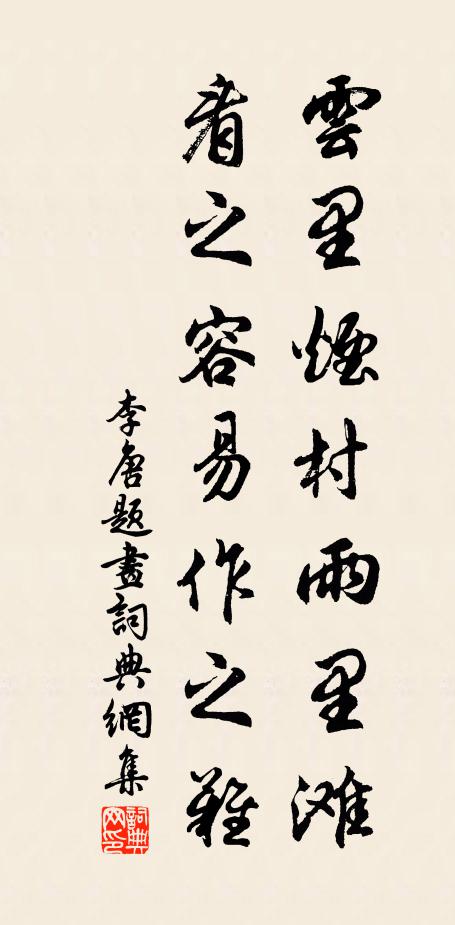 雲里煙村雨里滩
看之容易作之難
李唐題畫詞典網集
詞典网印